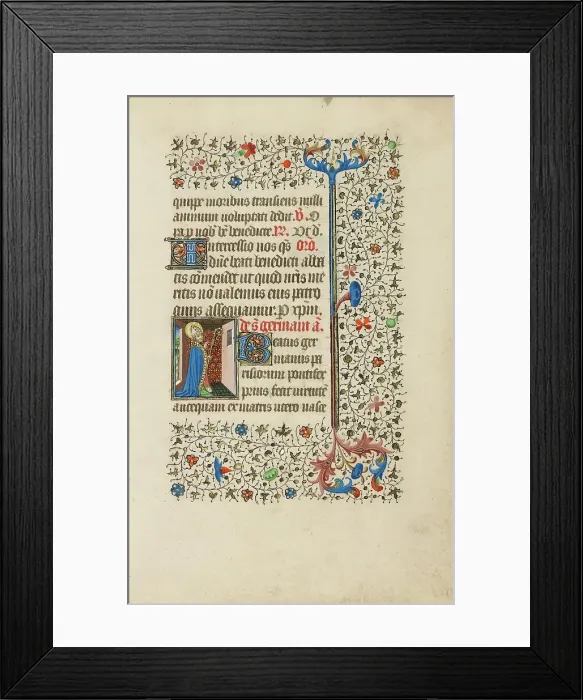 quippe moribus transiens nulli
animum voluptati dedit. V. O
ra p nob bē benedicte. R. Ut d.
Intercessio nos qs oro.
dn̄e beati benedicti abba
tis cōmendet ut quod nr̄is me
ritis nō valemus eius patro
cinis assequamur. P xp̄m.
de s germain a.
Beatus ger
manus pa
risiorum pontifex
prius fecit virtutē
antequam ex matris utero nasce